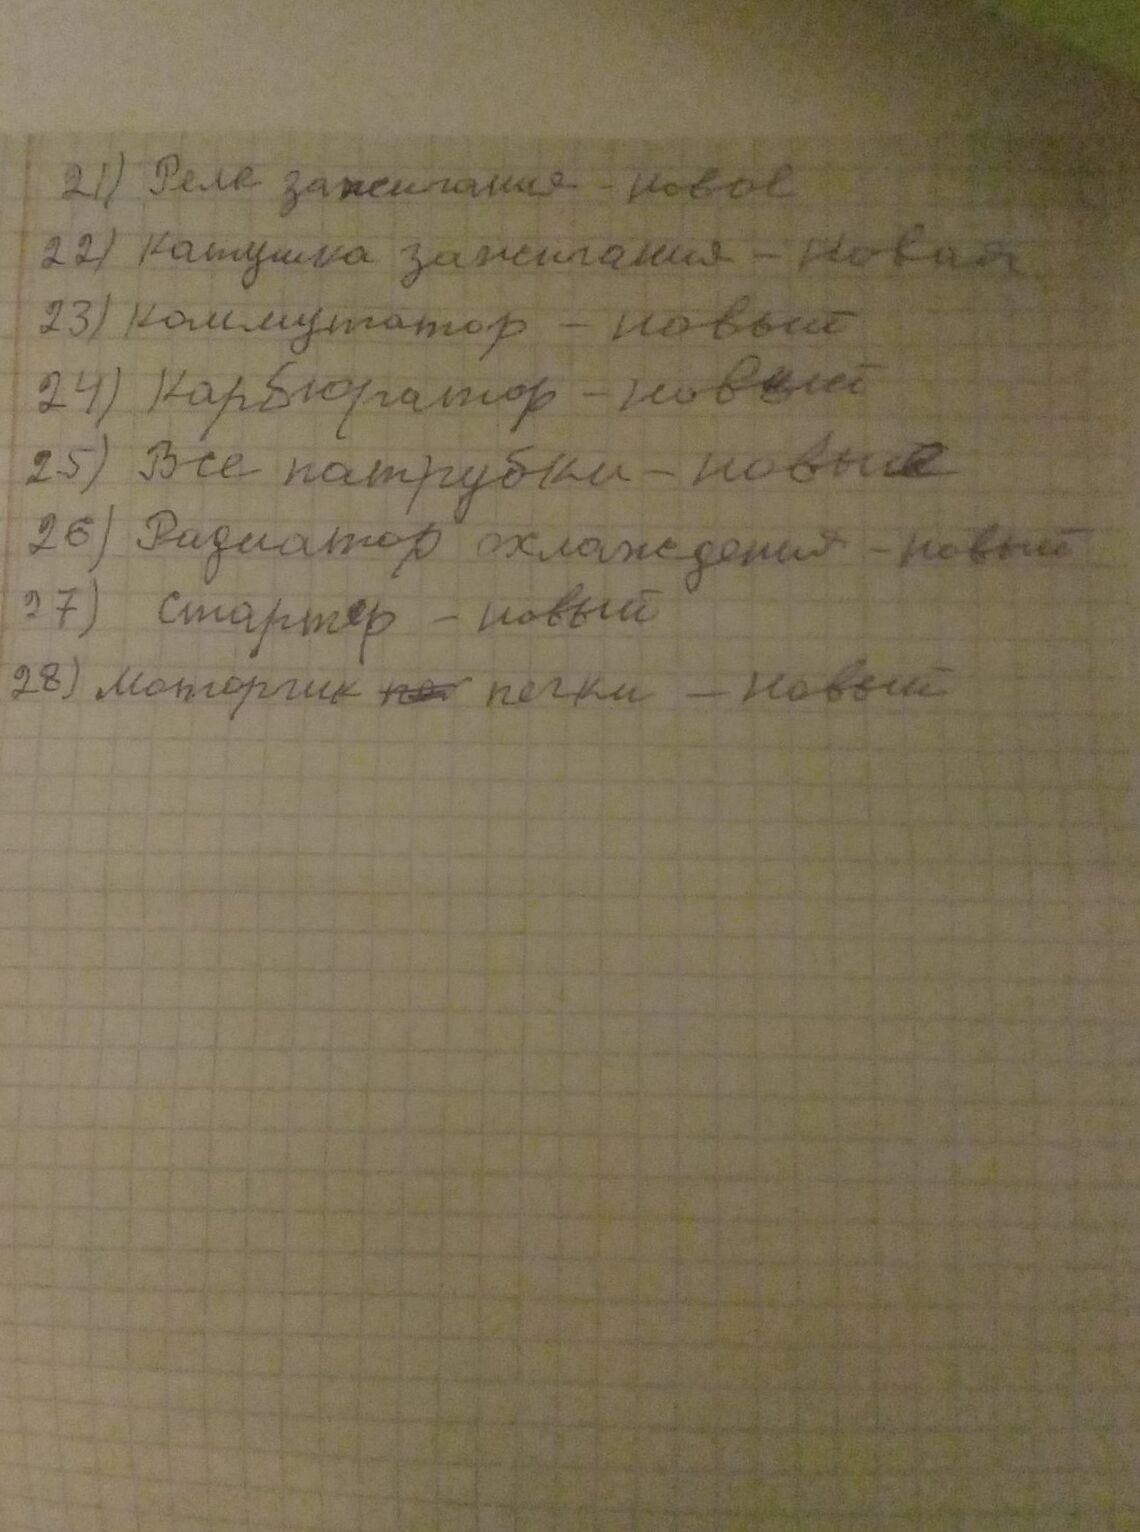 21) Реле зажигания - новое
22) Катушка зажигания - Новая
23) Коммутатор - новый
24) Карбюратор - новый
25) Все патрубки - новые
26) Радиатор охлаждения - новый
27) Стартер - новый
28) Моторчик печки - новый